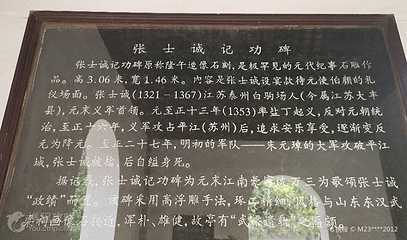 张士诚记功碑
张士诚记功碑原称隆平造像石刻，是极罕见的元代纪事石雕作
品。高3.06米，宽1.46米。内容是张士诚设宴款待元使伯颜的礼
仪场面。张士诚(1321－1367)江苏泰州白驹场人(今属江苏大丰
县)，元末义军首领。元至正十三年(1353)率盐丁起义，反对元朝统
治，至正十六年，义军攻占平江(苏州)后，追求安乐享受，逐渐变反
元为降元。至正二十七年，明初的军队——朱元璋的大军攻破平江
城，张士诚被掳后自缢身死。
据记载，张士诚记功碑为元末江南豪富沈万三为歌颂张士诚
“政绩”而立。该碑采用高浮雕手法，环工精细，风格与山东东汉武
梁祠画像石接近，浑朴、雄健，故亭有“武梁遗
©M23****2012